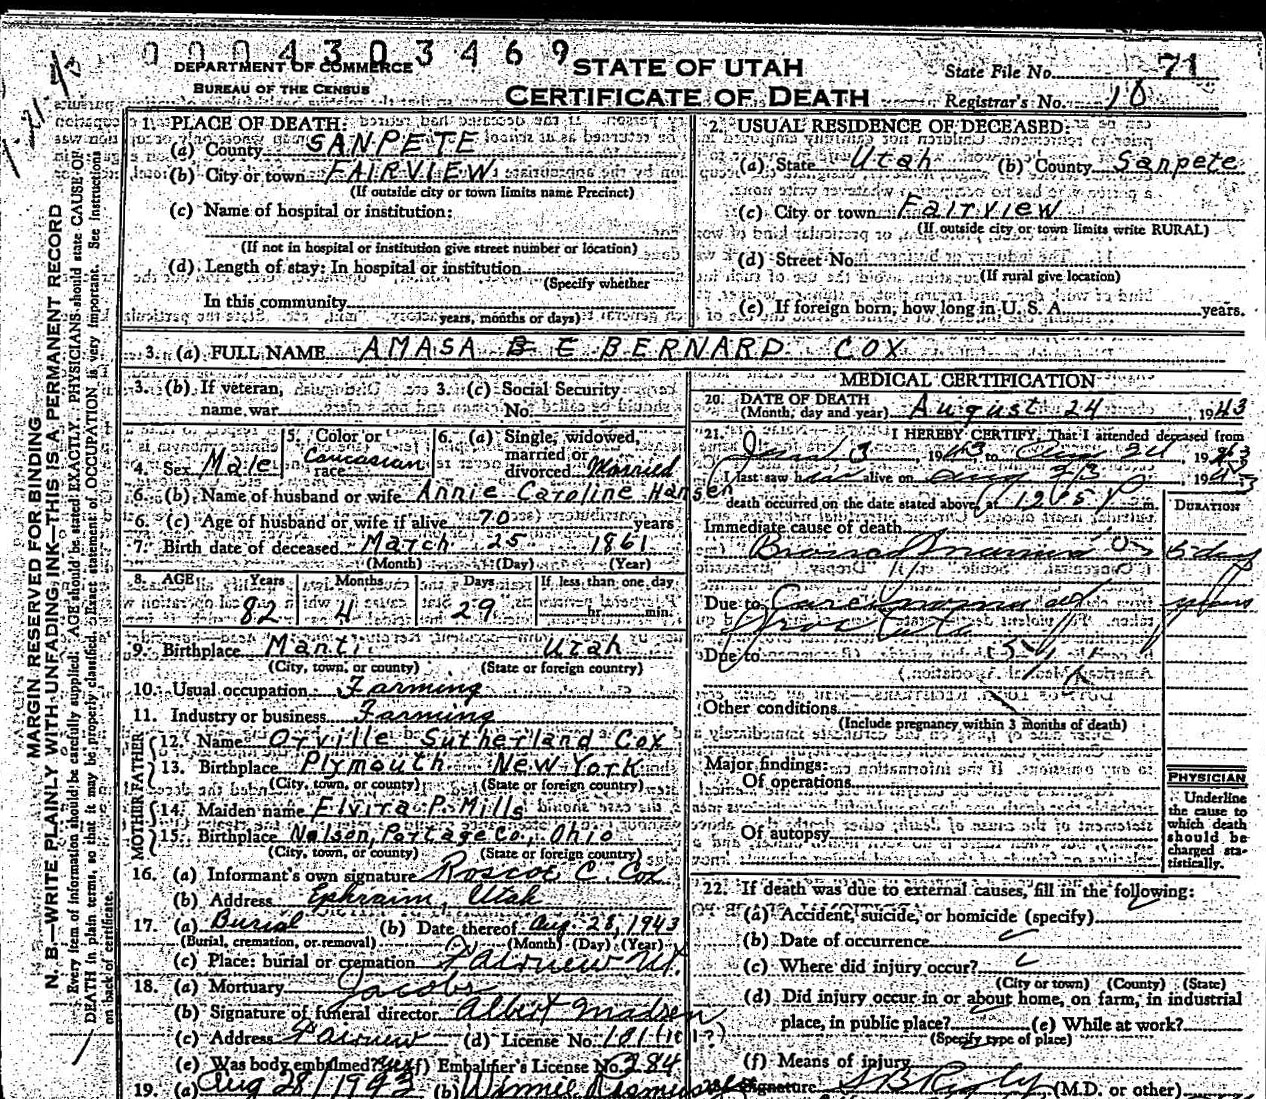 0 0 0 4 3 0 3 4 6 9
DEPARTMENT OF COMMERCE
BUREAU OF THE CENSUS
STATE OF UTAH
CERTIFICATE OF DEATH
State File No. 71
Registrar's No. 10
MARGIN RESERVED FOR BINDING
N. B.—WRITE PLAINLY WITH UNFADING INK—THIS IS A PERMANENT RECORD
Every item of information should be carefully supplied. AGE should be stated EXACTLY. PHYSICIANS should state CAUSE OF
DEATH in plain terms, so that it may be properly classified. Exact statement of OCCUPATION is very important. See instructions
on back of certificate.
1. PLACE OF DEATH:
(a) County SANPETE
(b) City or town FAIRVIEW
(If outside city or town limits name Precinct)
(c) Name of hospital or institution:
(If not in hospital or institution give street number or location)
(d) Length of stay: In hospital or institution
(Specify whether
In this community
years, months or days)
2. USUAL RESIDENCE OF DECEASED:
(a) State Utah (b) County Sanpete
(c) City or town Fairview
(If outside city or town limits write RURAL)
(d) Street No.
(If rural give location)
(e) If foreign born, how long in U. S. A. years.
3. (a) FULL NAME AMASA E BERNARD COX
3. (b) If veteran, 3. (c) Social Security
name war No.
4. Sex Male 5. Color or race Caucasian 6. (a) Single, widowed, married or divorced Married
6. (b) Name of husband or wife Annie Caroline Hansen
6. (c) Age of husband or wife if alive 70 years
7. Birth date of deceased March 25 1861
(Month) (Day) (Year)
8. AGE Years Months Days If less than one day
82 4 29 hr. min.
9. Birthplace Manti Utah
(City, town, or county) (State or foreign country)
10. Usual occupation Farming
11. Industry or business Farming
FATHER
12. Name Orville Sutherland Cox
13. Birthplace Plymouth New York
(City, town, or county) (State or foreign country)
MOTHER
14. Maiden name Elvira P. Mills
15. Birthplace Nelson, Portage Co., Ohio
(City, town, or county) (State or foreign country)
16. (a) Informant's own signature Roscoe C. Cox
(b) Address Ephraim, Utah
17. (a) Burial (b) Date thereof Aug. 28, 1943
(Burial, cremation, or removal) (Month) (Day) (Year)
(c) Place: burial or cremation Fairview Ut.
18. (a) Mortuary Jacobs
(b) Signature of funeral director Albert Madsen
(c) Address Fairview (d) License No.
(e) Was body embalmed? yes (f) Embalmer's License No. 284
19. (a) Aug 28/1943 (b) Winnie
MEDICAL CERTIFICATION
20. DATE OF DEATH
(Month, day and year) August 24, 1943
21. I HEREBY CERTIFY, That I attended deceased from
3, 1943 to Aug 24, 1943
I last saw him alive on Aug 1943
death occurred on the date stated above, at m. DURATION
Immediate cause of death
5 days
Due to Carcinoma of years
Prostate
Due to
Other conditions
(Include pregnancy within 3 months of death)
Major findings:
Of operations
Of autopsy
PHYSICIAN
Underline
the cause to
which death
should be
charged sta-
tistically.
22. If death was due to external causes, fill in the following:
(a) Accident, suicide, or homicide (specify)
(b) Date of occurrence
(c) Where did injury occur?
(City or town) (County) (State)
(d) Did injury occur in or about home, on farm, in industrial
place, in public place? (e) While at work?
(Specify type of place)
(f) Means of injury
Signature (M.D. or other)